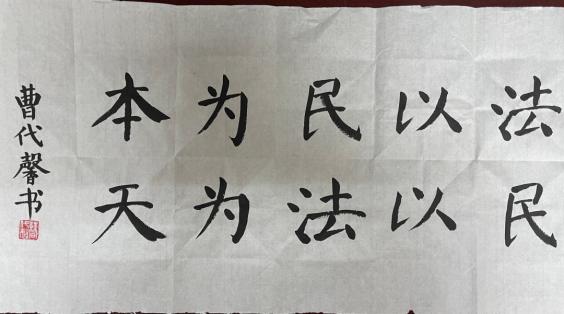 法以民为本
民以法为天
曹代馨书